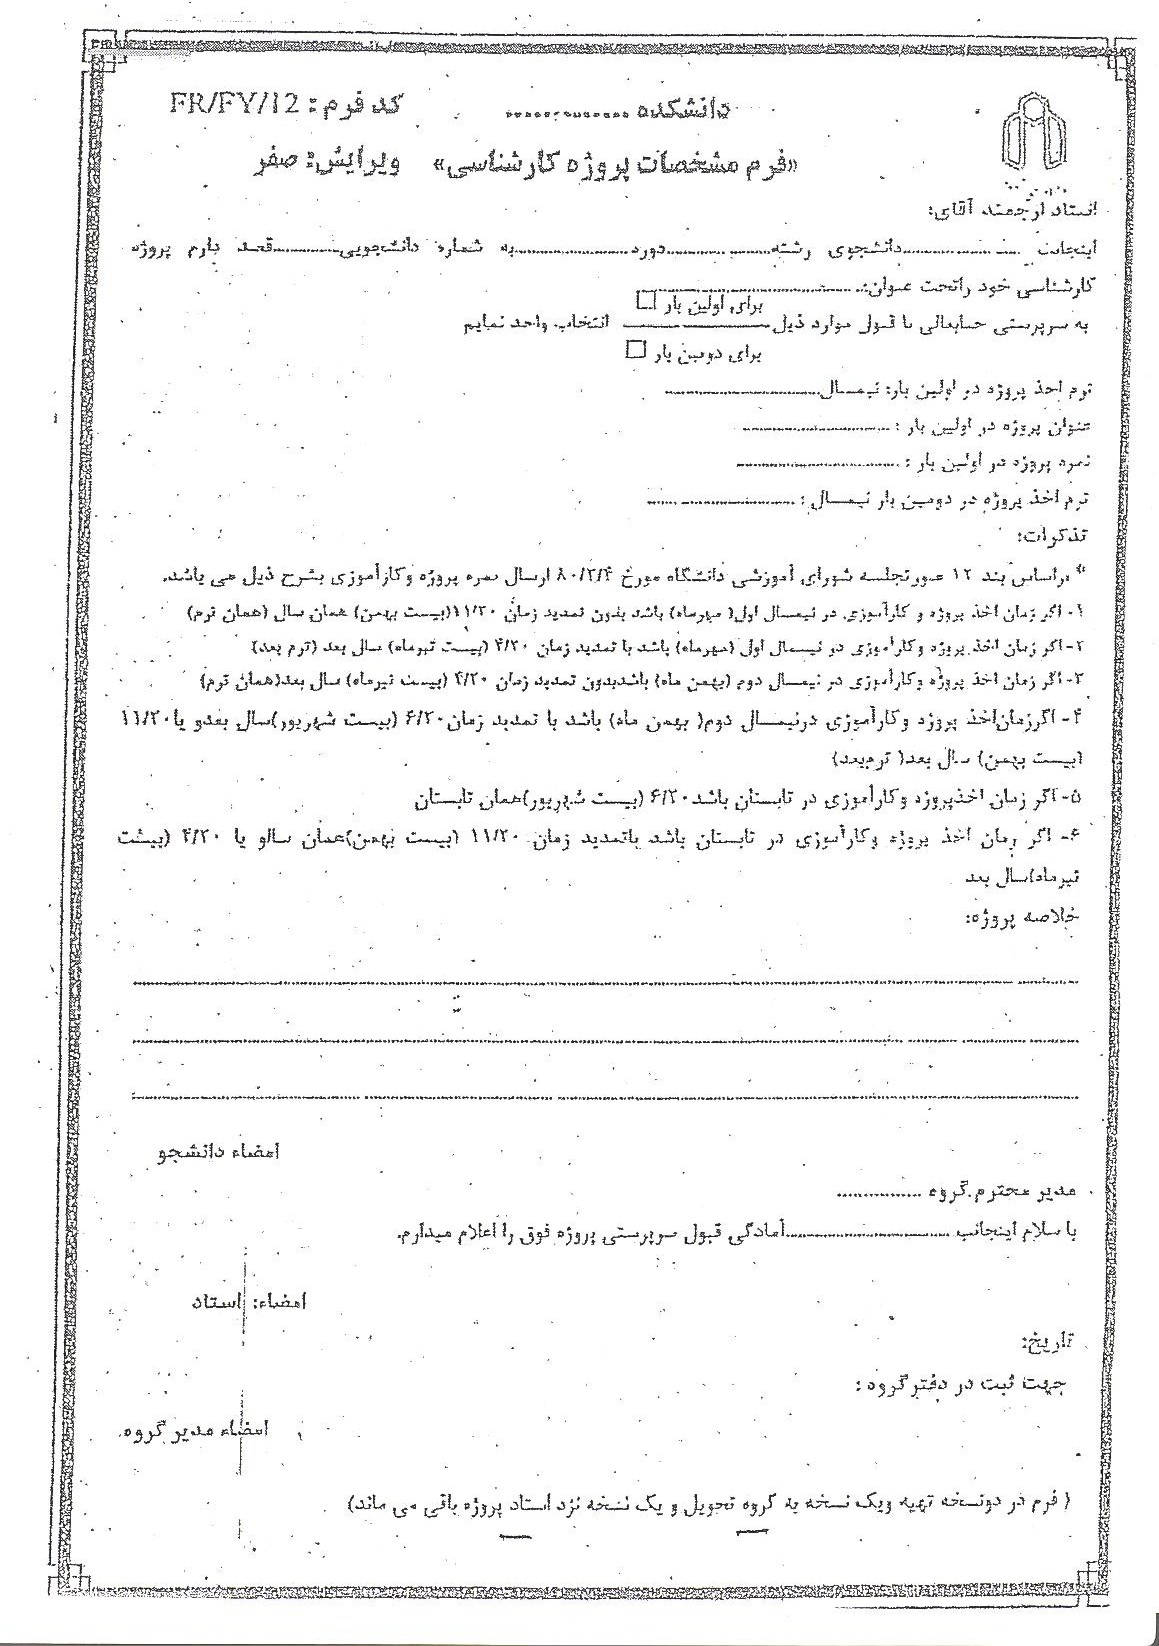 دانشکده ................ کد فرم : FR/FY/12
«فرم مشخصات پروژه کارشناسی» ویرایش: صفر
استاد ارجمند آقای:
اینجانب ....................دانشجوی رشته....................دوره....................به شماره دانشجویی............قصد دارم پروژه
کارشناسی خود راتحت عنوان:........................................
برای اولین بار □
به سرپرستی جنابعالی با قبول موارد ذیل ــــــــــــ انتخاب واحد نمایم
برای دومین بار □
ترم اخذ پروژه در اولین بار: نیمسال............................
عنوان پروژه در اولین بار : ............................
نمره پروژه در اولین بار : ............................
ترم اخذ پروژه در دومین بار نیمسال : ............................
تذکرات:
* براساس بند ۱۲ صورتجلسه شورای آموزشی دانشگاه مورخ ۸۰/۲/۴ ارسال نمره پروژه وکارآموزی بشرح ذیل می باشد.
۱- اگر زمان اخذ پروژه و کارآموزی در نیمسال اول( مهرماه) باشد بدون تمدید زمان ۱۱/۲۰(بیست بهمن) همان سال (همان ترم)
۲-اگر زمان اخذ پروژه وکارآموزی در نیمسال اول (مهرماه) باشد با تمدید زمان ۴/۲۰ (بیست تیرماه) سال بعد (ترم بعد)
۳-اگر زمان اخذ پروژه وکارآموزی در نیمسال دوم (بهمن ماه) باشدبدون تمدید زمان ۴/۲۰ (بیست تیرماه) سال بعد(همان ترم)
۴- اگرزمان‌اخذ پروژه وکارآموزی درنیمسال دوم( بهمن ماه) باشد با تمدید زمان۶/۲۰ (بیست شهریور)سال بعدو یا۱۱/۲۰
(بیست بهمن) سال بعد( ترم‌بعد)
۵- اگر زمان اخذپروژه وکارآموزی در تابستان باشد۶/۲۰ (بیست شهریور)همان تابستان
۶- اگر زمان اخذ پروژه وکارآموزی در تابستان باشد باتمدید زمان ۱۱/۲۰ (بیست بهمن)همان سالو یا ۴/۲۰ (بیست
تیرماه)سال بعد
خلاصه پروژه:
امضاء دانشجو
مدیر محترم گروه ................
با سلام اینجانب ............................آمادگی قبول سرپرستی پروژه فوق را اعلام میدارم.
امضاء: استاد
تاریخ:
جهت ثبت در دفترگروه :
امضاء مدیر گروه
( فرم در دونسخه تهیه ویک نسخه به گروه تحویل و یک نسخه نزد استاد پروژه باقی می ماند)